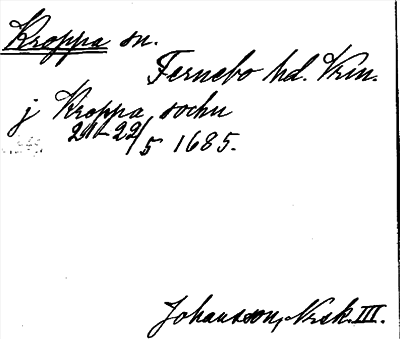 Kroppa sn.
Fernebo hd. Vrm.
j Kroppa sochn
21-22/5 1685.
Johansson, Nrsk. III.